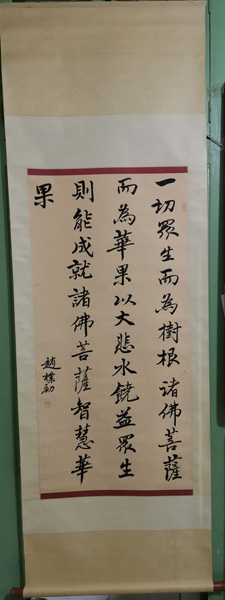 一切眾生而為樹根諸佛菩薩
而為華果以大悲水饒益眾生
則能成就諸佛菩薩智慧華
果
趙樸初